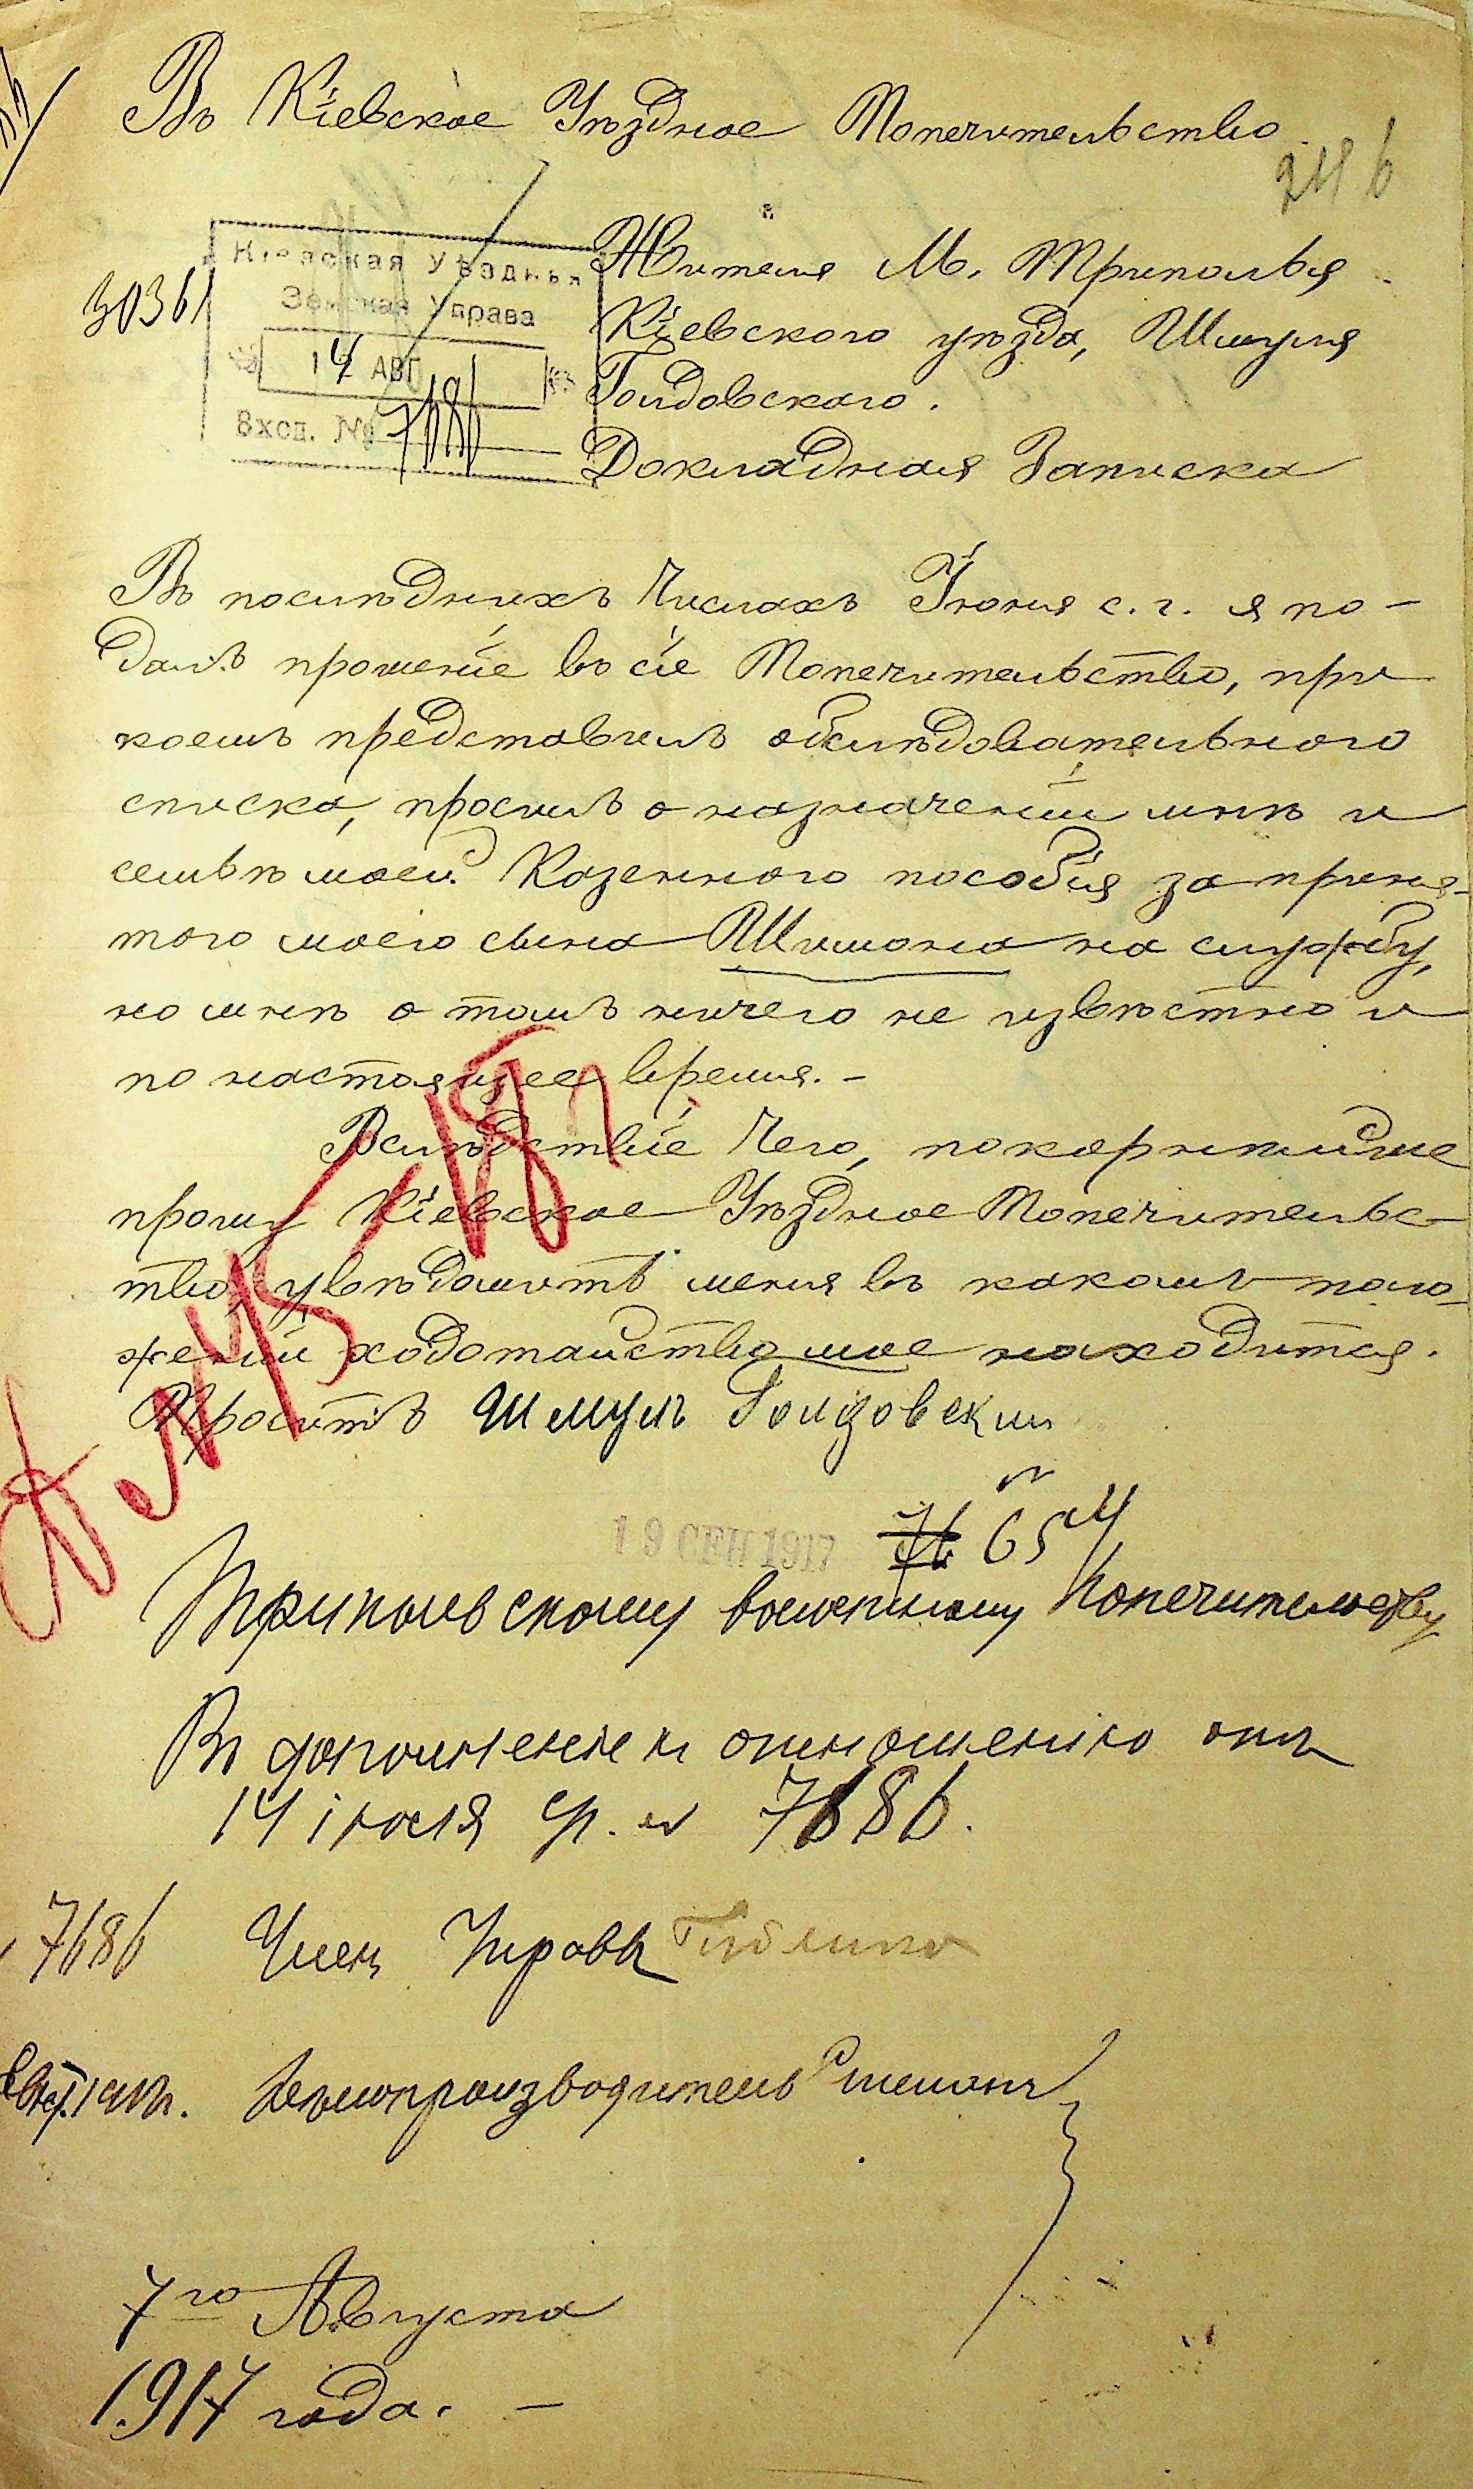 Въ Кіевское Уѣздное Попечительство
246
30361
Кіевская Уѣздная
Земская Управа
14 АВГ
Вход. № 7686
Жителя М. Триполья
Кіевского уѣзда, Шмуля
Голдовского.
Докладная Записка
Въ послѣднихъ Числахъ Іюня с. г. я по-
далъ прошеніе въ сіе Попечительство, при
коемъ представилъ обслѣдовательного
списка, просилъ о назначеніи мнѣ и
семьѣ моей Козенного пособія за приня-
того моего сына Шимона на службу,
но мнѣ о томъ ничего не извѣстно и
по настоящее время. -
Вслѣдствіе Чего, покорнѣйше
прошу Кіевское Уѣздное Попечительс-
тво, увѣдомить меня въ какомъ поло-
женіи ходотайство мое находится.
Проситъ Шмуль Голдовский
19 СЕН 1917 654
Трипольскому волостному Попечительству
Въ дополненіе къ отношенію отъ
14 іюля с/г. № 7686.
7686 Член Управы
1917г. Дѣлопроизводитель
7го Августа
1917 года. -